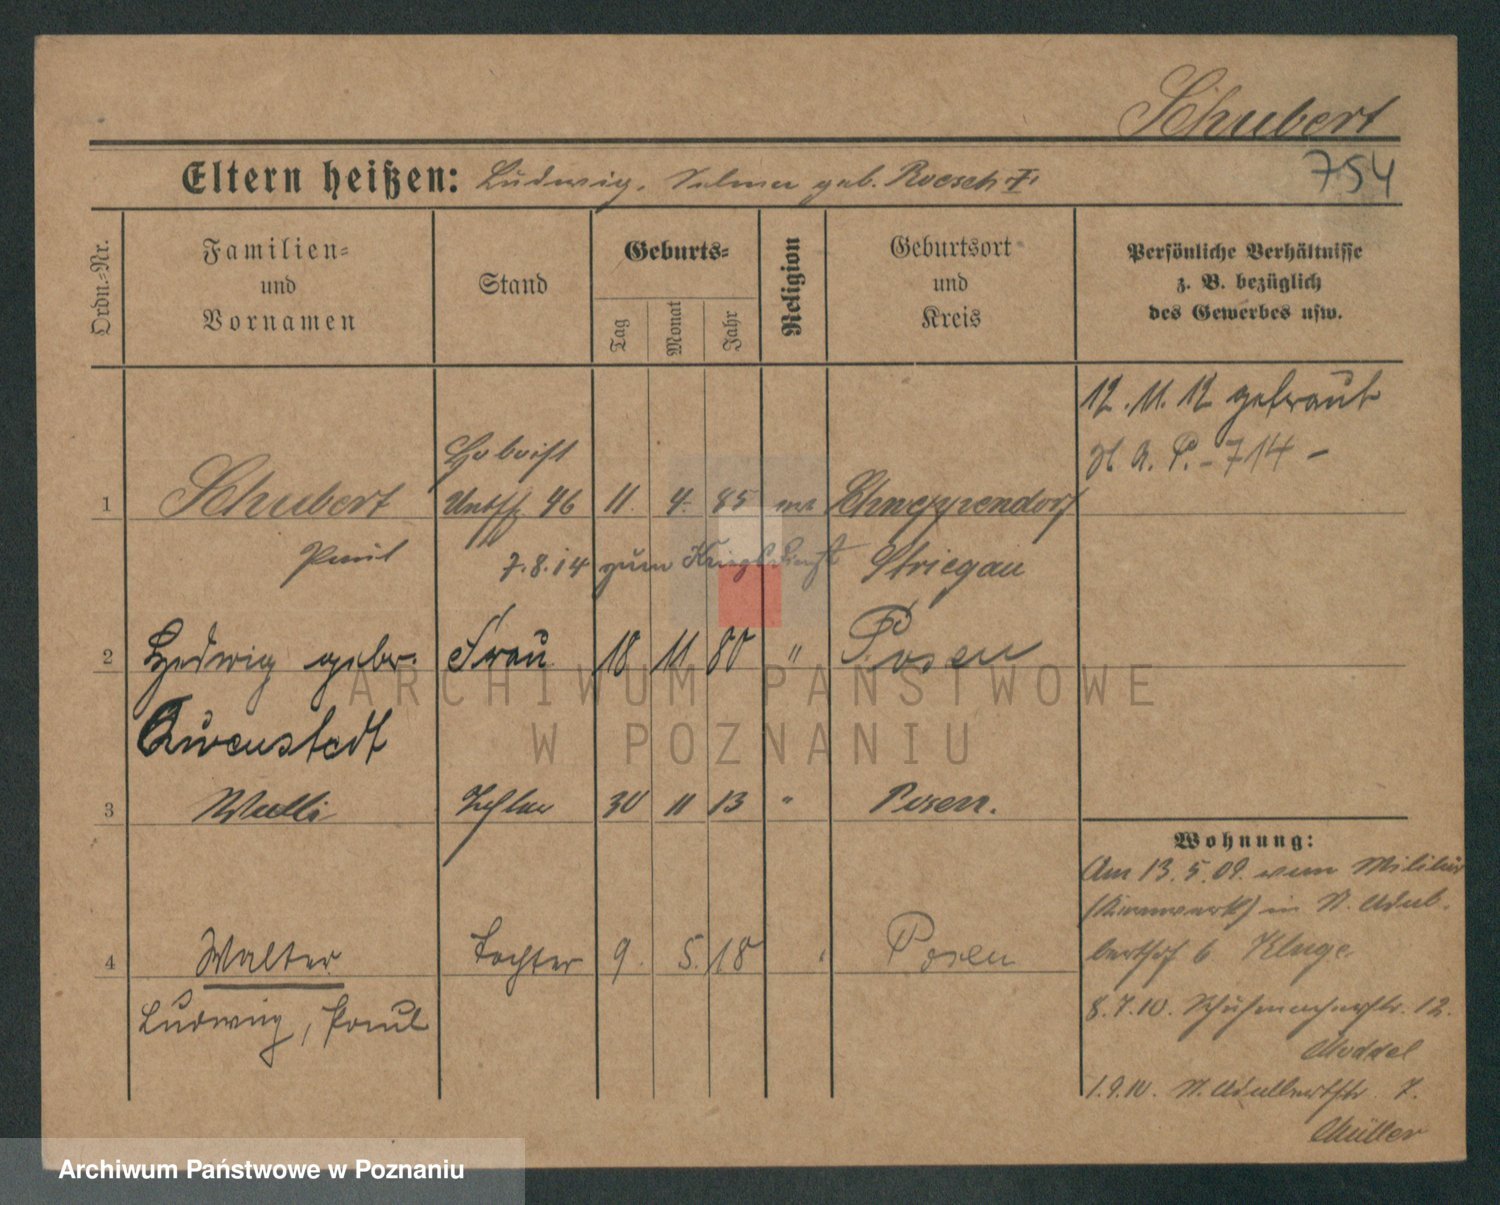 Schubert
754
Eltern heißen: Ludwig, Selma geb. Roesch
Ordn.-Nr.
Familien- und Vornamen
Stand
Geburts-
Tag
Monat
Jahr
Religion
Geburtsort und Kreis
Persönliche Verhältnisse
z. B. bezüglich
des Gewerbes usw.
12. 11. 12 getraut
P. - 714 -
Hoboist
1 Schubert Untff 46 11. 4. 85 Schneppendorf
Paul 7.8.14 zum Kriegsdienst Striegau
2 Hedwig gebr. Frau 18 11 80 " Posen
Quenstedt
3 Walli Tochter 30 11 13 " Posen.
Wohnung:
Am 13. 5. 09. vom Militär
in St. Adal-
berthof 6 Kluge.
4 Walter Tochter 9. 5. 18 Posen
Ludwig, Paul
8. 7. 10. Schuhmacherstr. 12.
1. 9. 10. St. Adalbertstr. 7.
Müller
ARCHIWUM PAŃSTWOWE
W POZNANIU
Archiwum Państwowe w Poznaniu